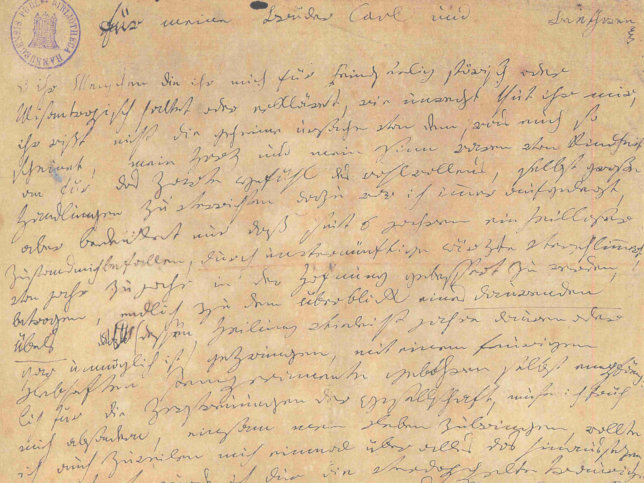 BIBLIOTHECA HAMBURGENSIS PUBLICA
für meine Brüder Carl und Beethowen
o ihr Menschen die ihr mich für Feindseelig störisch oder
Misantropisch haltet oder erkläret, wie unrecht thut ihr mir
ihr wißt nicht die geheime ursache von dem, was euch so
scheinet, mein Herz und mein Sinn waren von Kindheit
an für das zarte Gefühl des wohlwollens, selbst große
Handlungen zu verrichten dazu war ich imer aufgelegt,
aber bedenket nur daß seit 6 jahren ein heilloser
Zustand mich befallen, durch unvernünftige ärzte verschlimert,
von jahr zu jahr in der Hofnung gebessert zu werden,
betrogen, endlich zu dem überblick eines daurenden
Übels (dessen Heilung vieleicht jahre dauren oder
gar unmöglich ist) gezwungen, mit einem feurigen
Lebhaften Temperamente gebohren selbst empfäng
lich für die Zerstreuungen der gesellschaft, muste ich früh
mich absondern, einsam mein Leben zubringen, wollte
ich auch zuweilen mich einmal über alles das hinaussezen
ich dur die verdoppelte